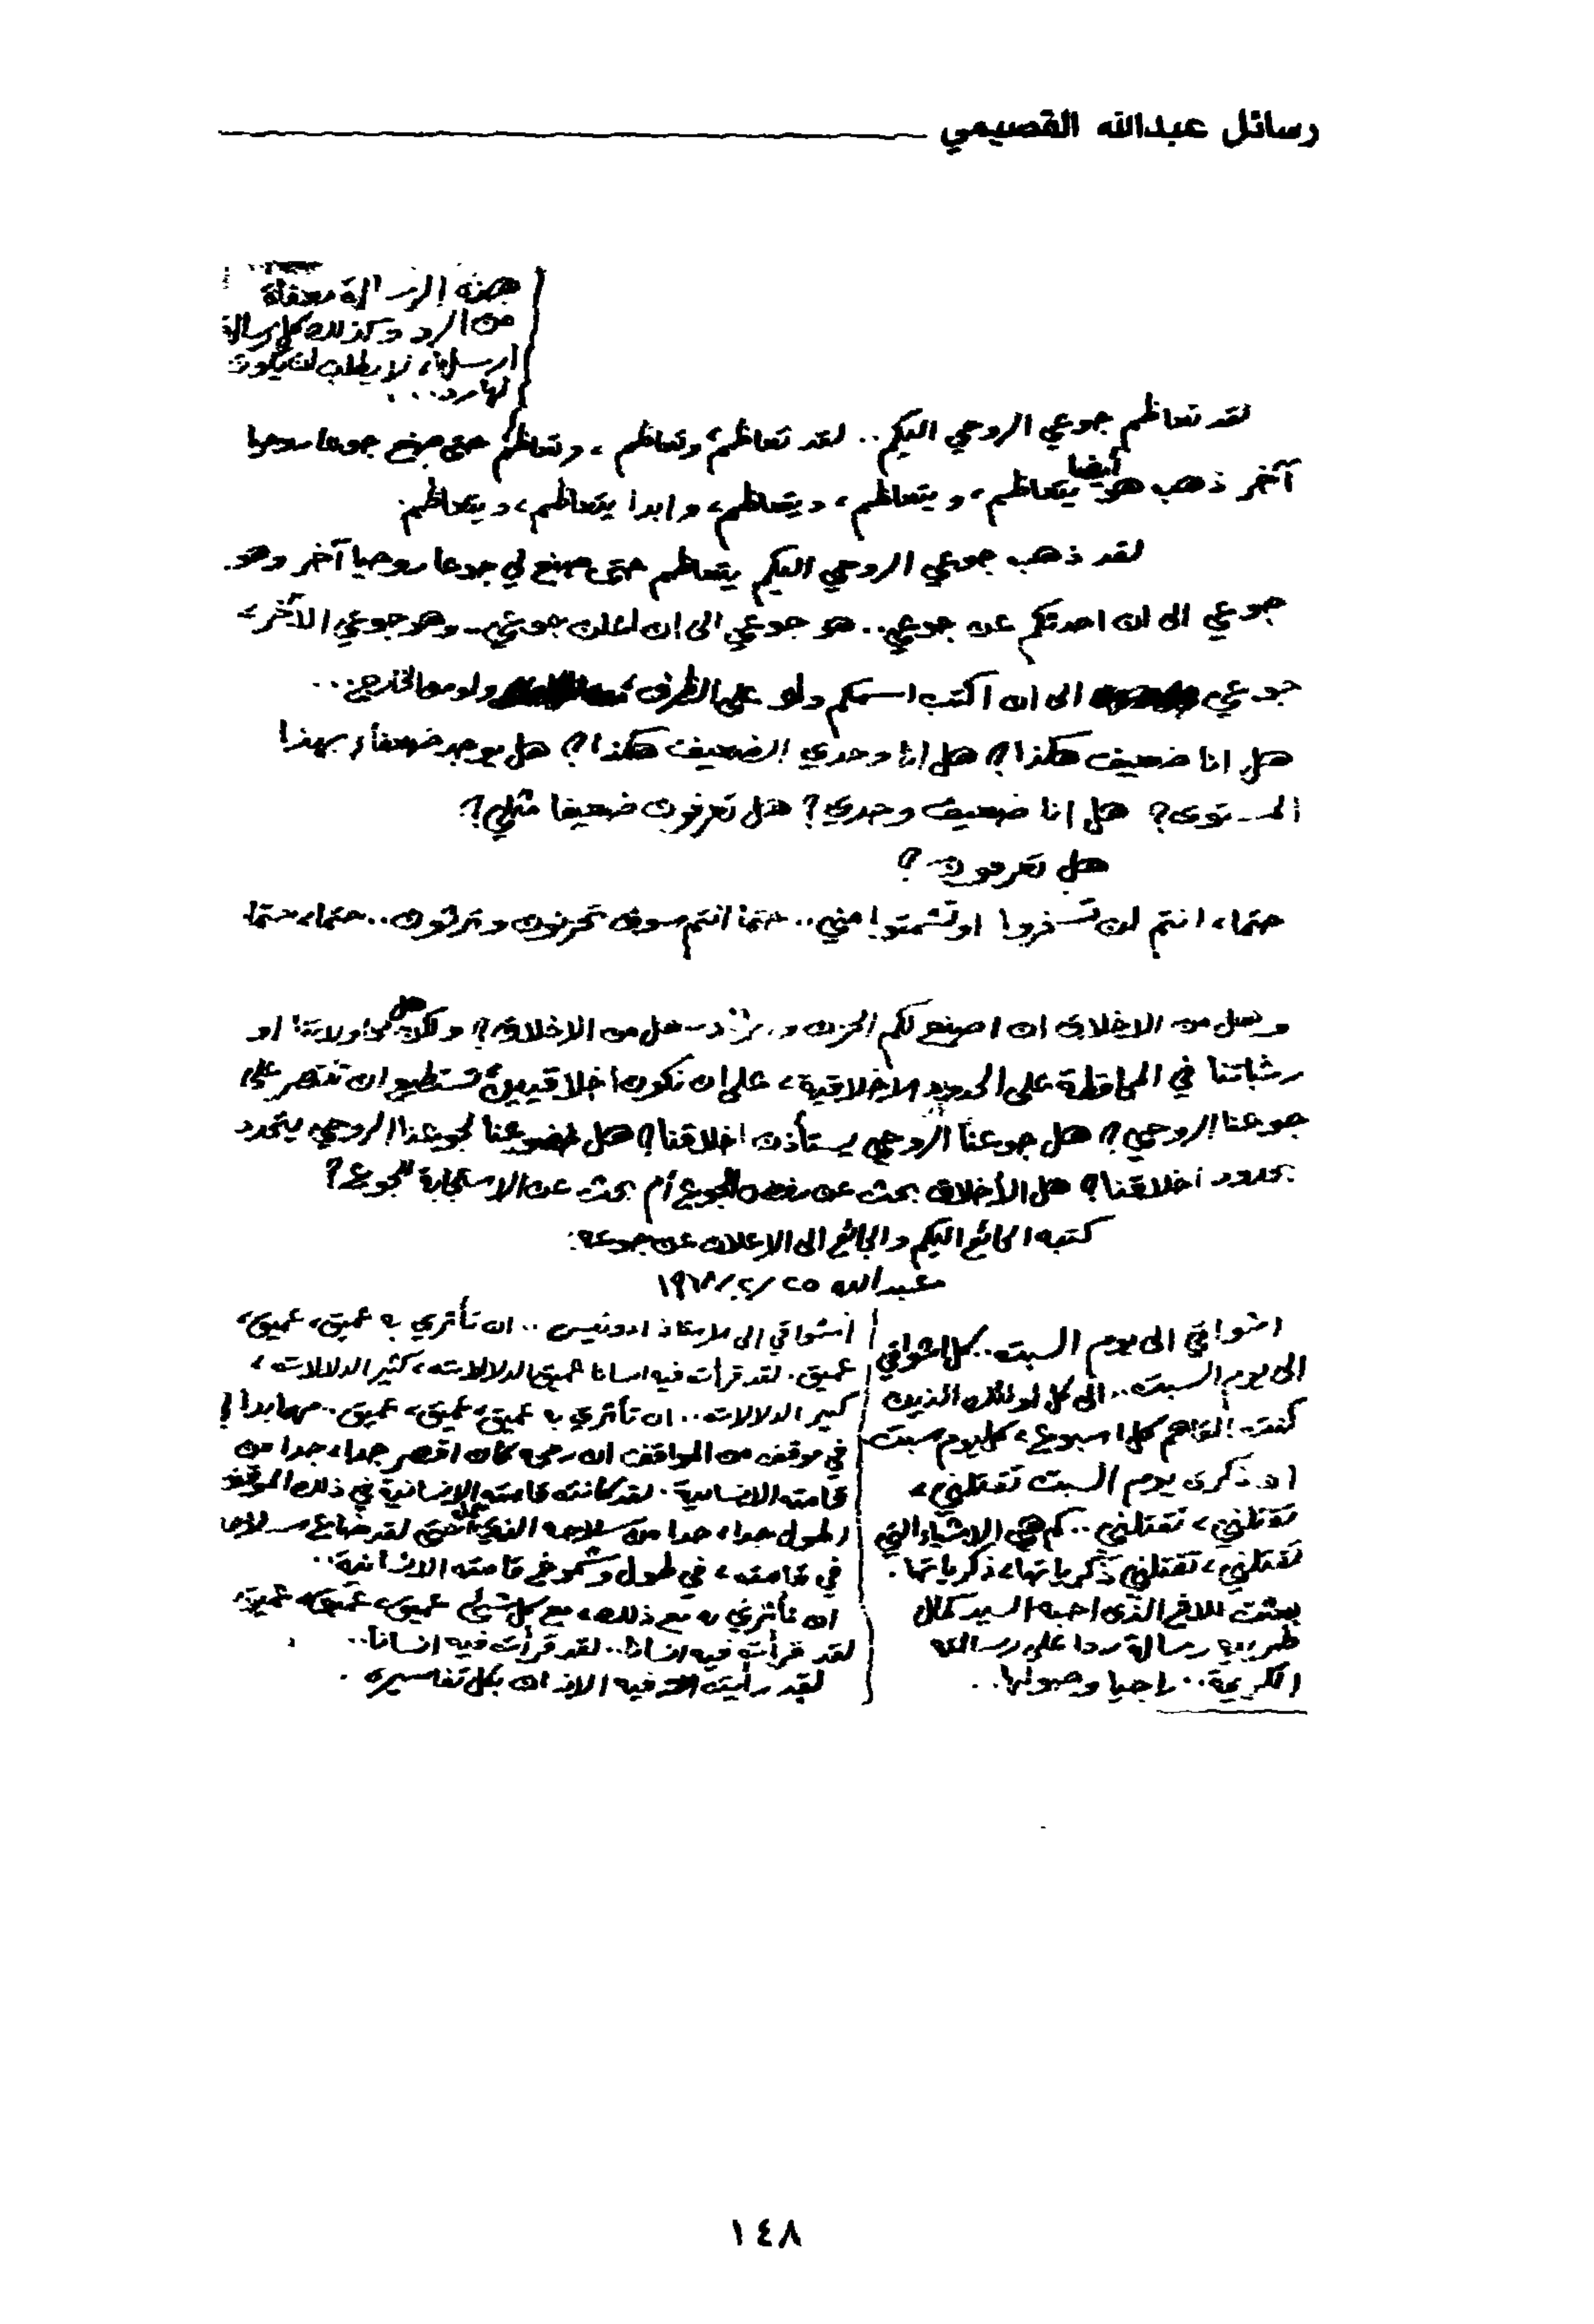 رسائل عبدالله القصيمي
هذه الرسالة معفاة
من الرد وكذلك كل رسالة
ارسلها، لا يطلب ان يكون
لها رد...
لقد تعاظم جوعي الروحي اليكم.. لقد تعاظم، وتعاظم، وتعاظم حتى صنع جوعا روحيا
آخر ذهب هو أيضا يتعاظم، ويتعاظم، ويتعاظم، وابدا يتعاظم، ويتعاظم.
لقد ذهب جوعي الروحي اليكم يتعاظم حتى صنع لي جوعا روحيا آخر وهو.
جوعي الى ان احدثكم عن جوعي.. هو جوعي الى ان اعلن جوعي.. وهو جوعي الآخر،
جوعي الى ان اكتب اسمكم ولو على الظرف، ولو من الخارج...
هل انا ضعيف هكذا؟ هل انا وحدي الضعيف هكذا؟ هل يوجد ضعفاء بهذا
المستوى؟ هل انا ضعيف وحدي؟ هل تعرفون ضعيفا مثلي؟
هل تعرفون؟
حتما، انتم لن تسخروا او تشمتوا مني.. حتما انتم سوف تحزنون وترثون.. حتما، حتما
وهل من الاخلاق ان اصنع لكم الحزن و هل من الاخلاق؟ ولكن هل محاولاتنا او
رغباتنا في المحافظة على الحدود الاخلاقية، على ان نكون اخلاقيين، تستطيع ان تنتصر على
جوعنا الروحي؟ هل جوعنا الروحي يستأذن اخلاقنا؟ هل خضوعنا لجوعنا الروحي يتحدد
بحدود اخلاقنا؟ هل الأخلاق بحث عن رفض الجوع أم بحث عن الاستجابة للجوع؟
كتبه الجائع اليكم والجائع الى الاعلان عن جوعه:
عبدالله ٢٥/٢/١٩٦٨
اشواقي الى يوم السبت.. كل اشواقي
الى يوم السبت.. الى كل اولئك الذين
كنت القاهم كل اسبوع، كل يوم سبت
ان ذكرى يوم السبت تقتلني،
تقتلني، تقتلني.. كم هي الاشياء التي
تقتلني، تقتلني ذكرياتها، ذكرياتها.
بعثت للاخ الذي احبه السيد كمال
رسالة ردا على رسالته
الكريمة.. راجيا وصولها..
اشواقي الى الاستاذ ادونيس.. ان تأثري به عميق، عميق،
عميق. لقد قرأت فيه انسانا عميق الدلالات، كثير الدلالات،
كبير الدلالات.. ان تأثري به عميق، عميق، عميق.. مهما بدا لي
في موقف من المواقف ان رمحه كان اقصر جدا، جدا من
قامته الانسانية. لقد كانت قامته الانسانية في ذلك الموقف
اطول جدا، جدا من سلاحه لقد ضاع سلاحه
في قامته، في طول وشموخ قامته الانسانية..
ان تأثري به مع ذلك، مع كل شيء عميق، عميق، عميق،
لقد قرأت فيه انسانا.. لقد قرأت فيه انسانا..
لقد رأيت فيه الانسان بكل تفاسيره.
١٤٨